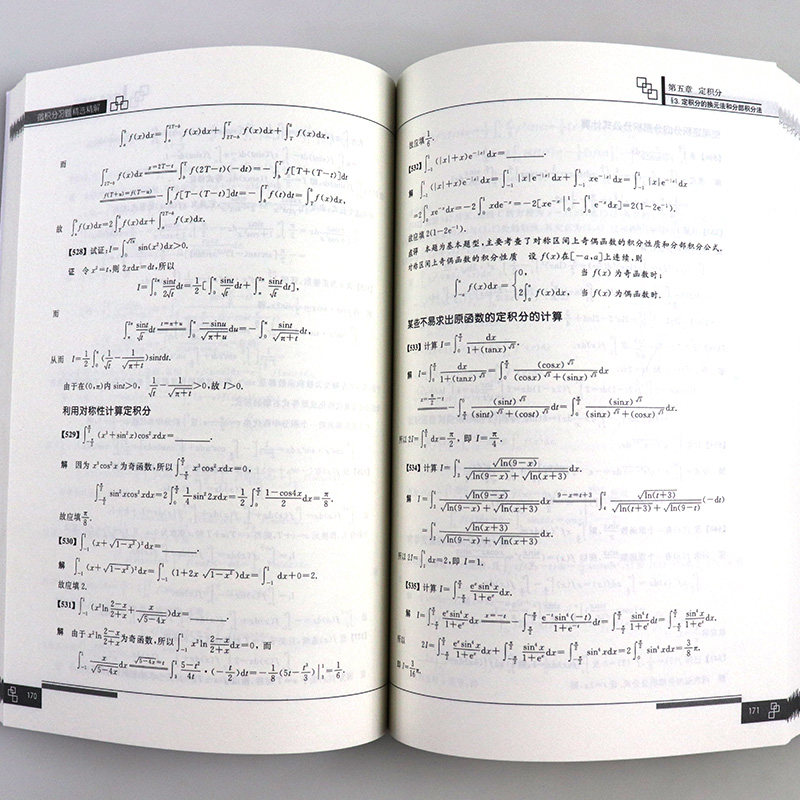 微积分习题精选精解
∫ₐ⁰ f(x)dx=∫ₐ^{2T-a} f(x)dx+∫_{2T-a}^{T} f(x)dx+∫_T^0 f(x)dx,
而
∫_{2T-a}^{T} f(x)dx =(x=2T-t)= ∫ f(2T-t)(-dt)=-∫ f[T+(T-t)]dt
=(f(T+u)=f(T-u))= -∫ f[T-(T-t)]dt=-∫ f(t)dt=∫ f(x)dx,
故 ∫ f(x)dx=2∫ f(x)dx+∫ f(x)dx.
【528】试证: I=∫_0^{√2π} sin(x²)dx>0.
证 令 x²=t,则 2xdx=dt,所以
I=∫_0^{2π} sint/(2√t) dt=1/2[∫_0^π sint/√t dt+∫_π^{2π} sint/√t dt],
而
∫_π^{2π} sint/√t dt =(t=π+u)= ∫_0^π -sinu/√(π+u) du=-∫_0^π sint/√(π+t) dt,
从而 I=1/2∫_0^π (1/√t-1/√(π+t))sintdt.
由于在(0,π)内 sint>0, 1/√t-1/√(π+t)>0,故 I>0.
利用对称性计算定积分
【529】∫_{-π/2}^{π/2} (x³+sin²x)cos²xdx=______.
解 因为 x³cos²x 为奇函数,所以∫_{-π/2}^{π/2} x³cos²xdx=0,
∫_{-π/2}^{π/2} sin²xcos²xdx=2∫_0^{π/2} 1/4 sin²2xdx=1/2∫_0^{π/2} (1-cos4x)/2 dx=π/8.
故应填 π/8.
【530】∫_{-1}^1 (x+√(1-x²))²dx=______.
解 ∫_{-1}^1 (x+√(1-x²))²dx=∫_{-1}^1 (1+2x√(1-x²))dx=∫_{-1}^1 dx+0=2.
故应填 2.
【531】∫_{-1}^1 (x²ln (2-x)/(2+x)+x/√(5-4x))dx=______.
解 由于 x²ln (2-x)/(2+x) 为奇函数,所以∫_{-1}^1 x²ln (2-x)/(2+x) dx=0,而
∫_{-1}^1 x/√(5-4x) dx =(√(5-4x)=t)= ∫_3^1 (5-t²)/(4t)·(-t/2)dt=-1/8(5t-t³/3)|_3^1=1/6.
170
第五章 定积分
§3. 定积分的换元法和分部积分法
故应填 1/6.
【532】∫_{-1}^1 (|x|+x)e^{-|x|}dx=______.
解 ∫_{-1}^1 (|x|+x)e^{-|x|}dx=∫_{-1}^1 |x|e^{-|x|}dx+∫_{-1}^1 xe^{-|x|}dx=∫_{-1}^1 |x|e^{-|x|}dx
=2∫_0^1 xe^{-x}dx=-2∫_0^1 xde^{-x}=-2[xe^{-x}|_0^1-∫_0^1 e^{-x}dx]=2(1-2e^{-1}).
故应填 2(1-2e^{-1}).
点评 本题为基本题型,主要考查了对称区间上奇偶函数的积分性质和分部积分公式.
对称区间上奇偶函数的积分性质 设 f(x)在[-a,a]上连续,则
∫_{-a}^a f(x)dx={0, 当 f(x)为奇函数时; 2∫_0^a f(x)dx, 当 f(x)为偶函数时.
某些不易求出原函数的定积分的计算
【533】计算 I=∫_0^{π/2} dx/(1+(tanx)^{√2}).
解 I=∫_0^{π/2} dx/(1+(tanx)^{√2})=∫_0^{π/2} (cosx)^{√2}/((cosx)^{√2}+(sinx)^{√2}) dx
=(x=π/2-t)= -∫_{π/2}^0 (sint)^{√2}/((sint)^{√2}+(cost)^{√2}) dt=∫_0^{π/2} (sinx)^{√2}/((sinx)^{√2}+(cosx)^{√2}) dx.
所以 2I=∫_0^{π/2} dx=π/2, 即 I=π/4.
【534】计算 I=∫_2^4 √ln(9-x)/(√ln(9-x)+√ln(x+3)) dx.
解 I=∫_2^4 √ln(9-x)/(√ln(9-x)+√ln(x+3)) dx =(9-x=t+3)= ∫_4^2 √ln(t+3)/(√ln(t+3)+√ln(9-t)) (-dt)
=∫_2^4 √ln(x+3)/(√ln(9-x)+√ln(x+3)) dx.
所以 2I=∫_2^4 dx=2,即 I=1.
【535】计算 I=∫_{-π/2}^{π/2} eˣsin⁴x/(1+eˣ) dx.
解 I=∫_{-π/2}^{π/2} eˣsin⁴x/(1+eˣ) dx =(x=-t)= ∫_{π/2}^{-π/2} e^{-t}sin⁴(-t)/(1+e^{-t}) (-dt)=∫_{-π/2}^{π/2} sin⁴t/(1+eᵗ) dt=∫_{-π/2}^{π/2} sin⁴x/(1+eˣ) dx.
所以 2I=∫_{-π/2}^{π/2} eˣsin⁴x/(1+eˣ) dx+∫_{-π/2}^{π/2} sin⁴x/(1+eˣ) dx=∫_{-π/2}^{π/2} sin⁴xdx=2∫_0^{π/2} sin⁴xdx=3/8 π.
即 I=3/16 π.
171